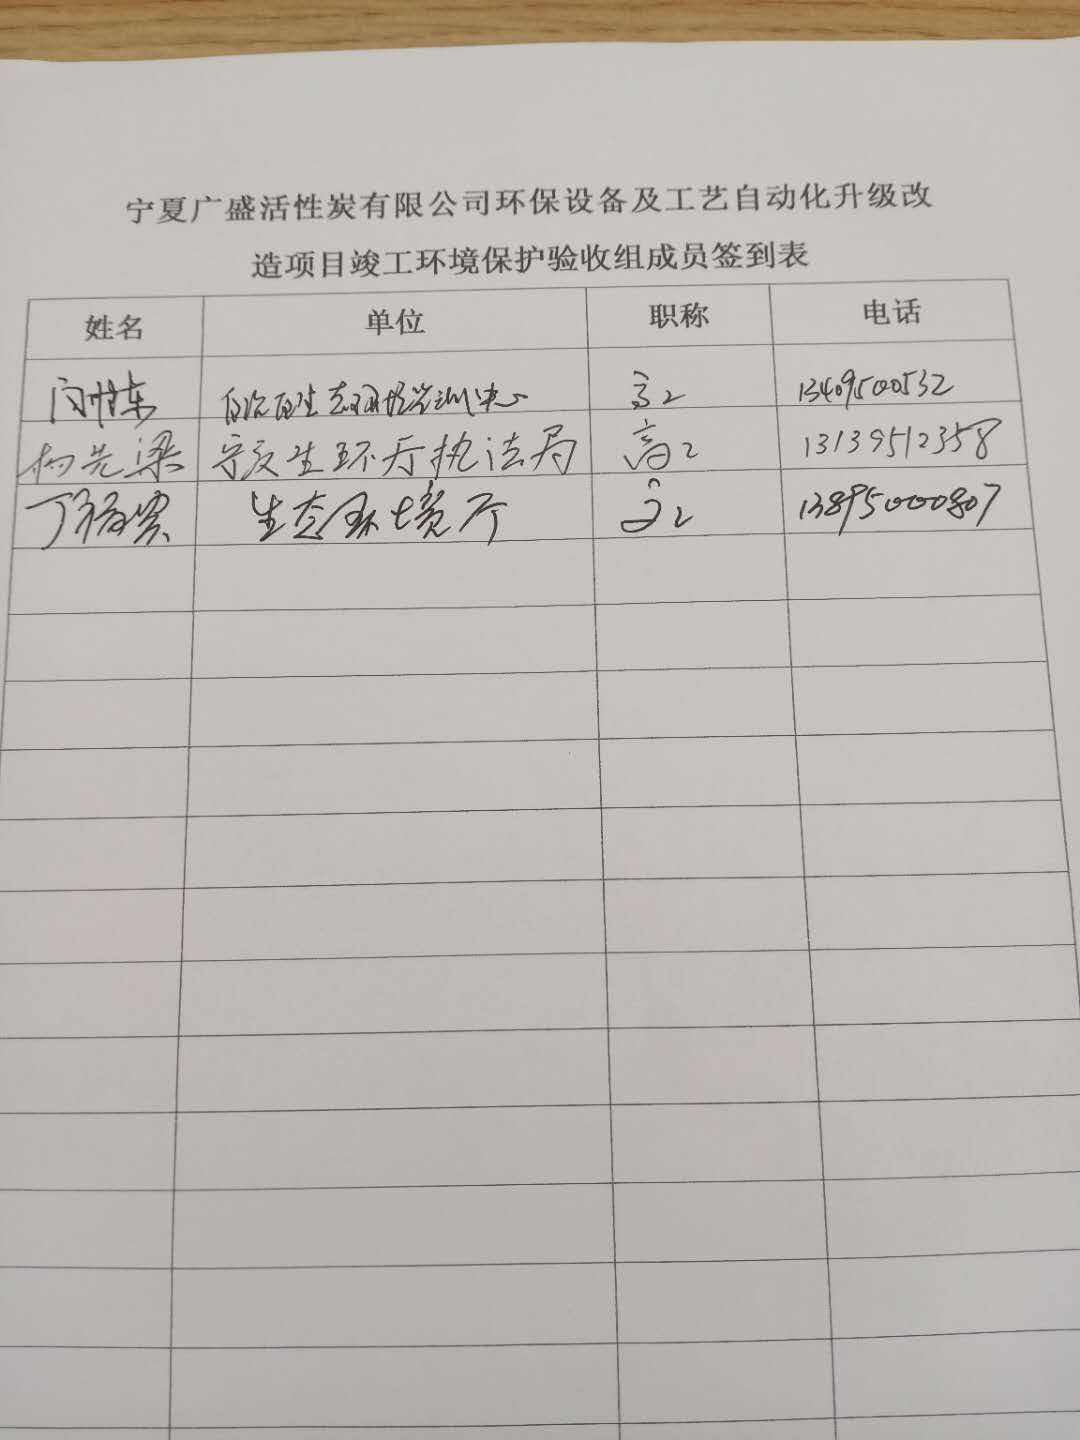 宁夏广盛活性炭有限公司环保设备及工艺自动化升级改
造项目竣工环境保护验收组成员签到表
姓名 单位 职称 电话
东 自治区生态环境监测中心 高工 13409500532
杨先梁 宁夏生环厅执法局 高工 13139512358
丁 生态环境厅 高工 13895000807